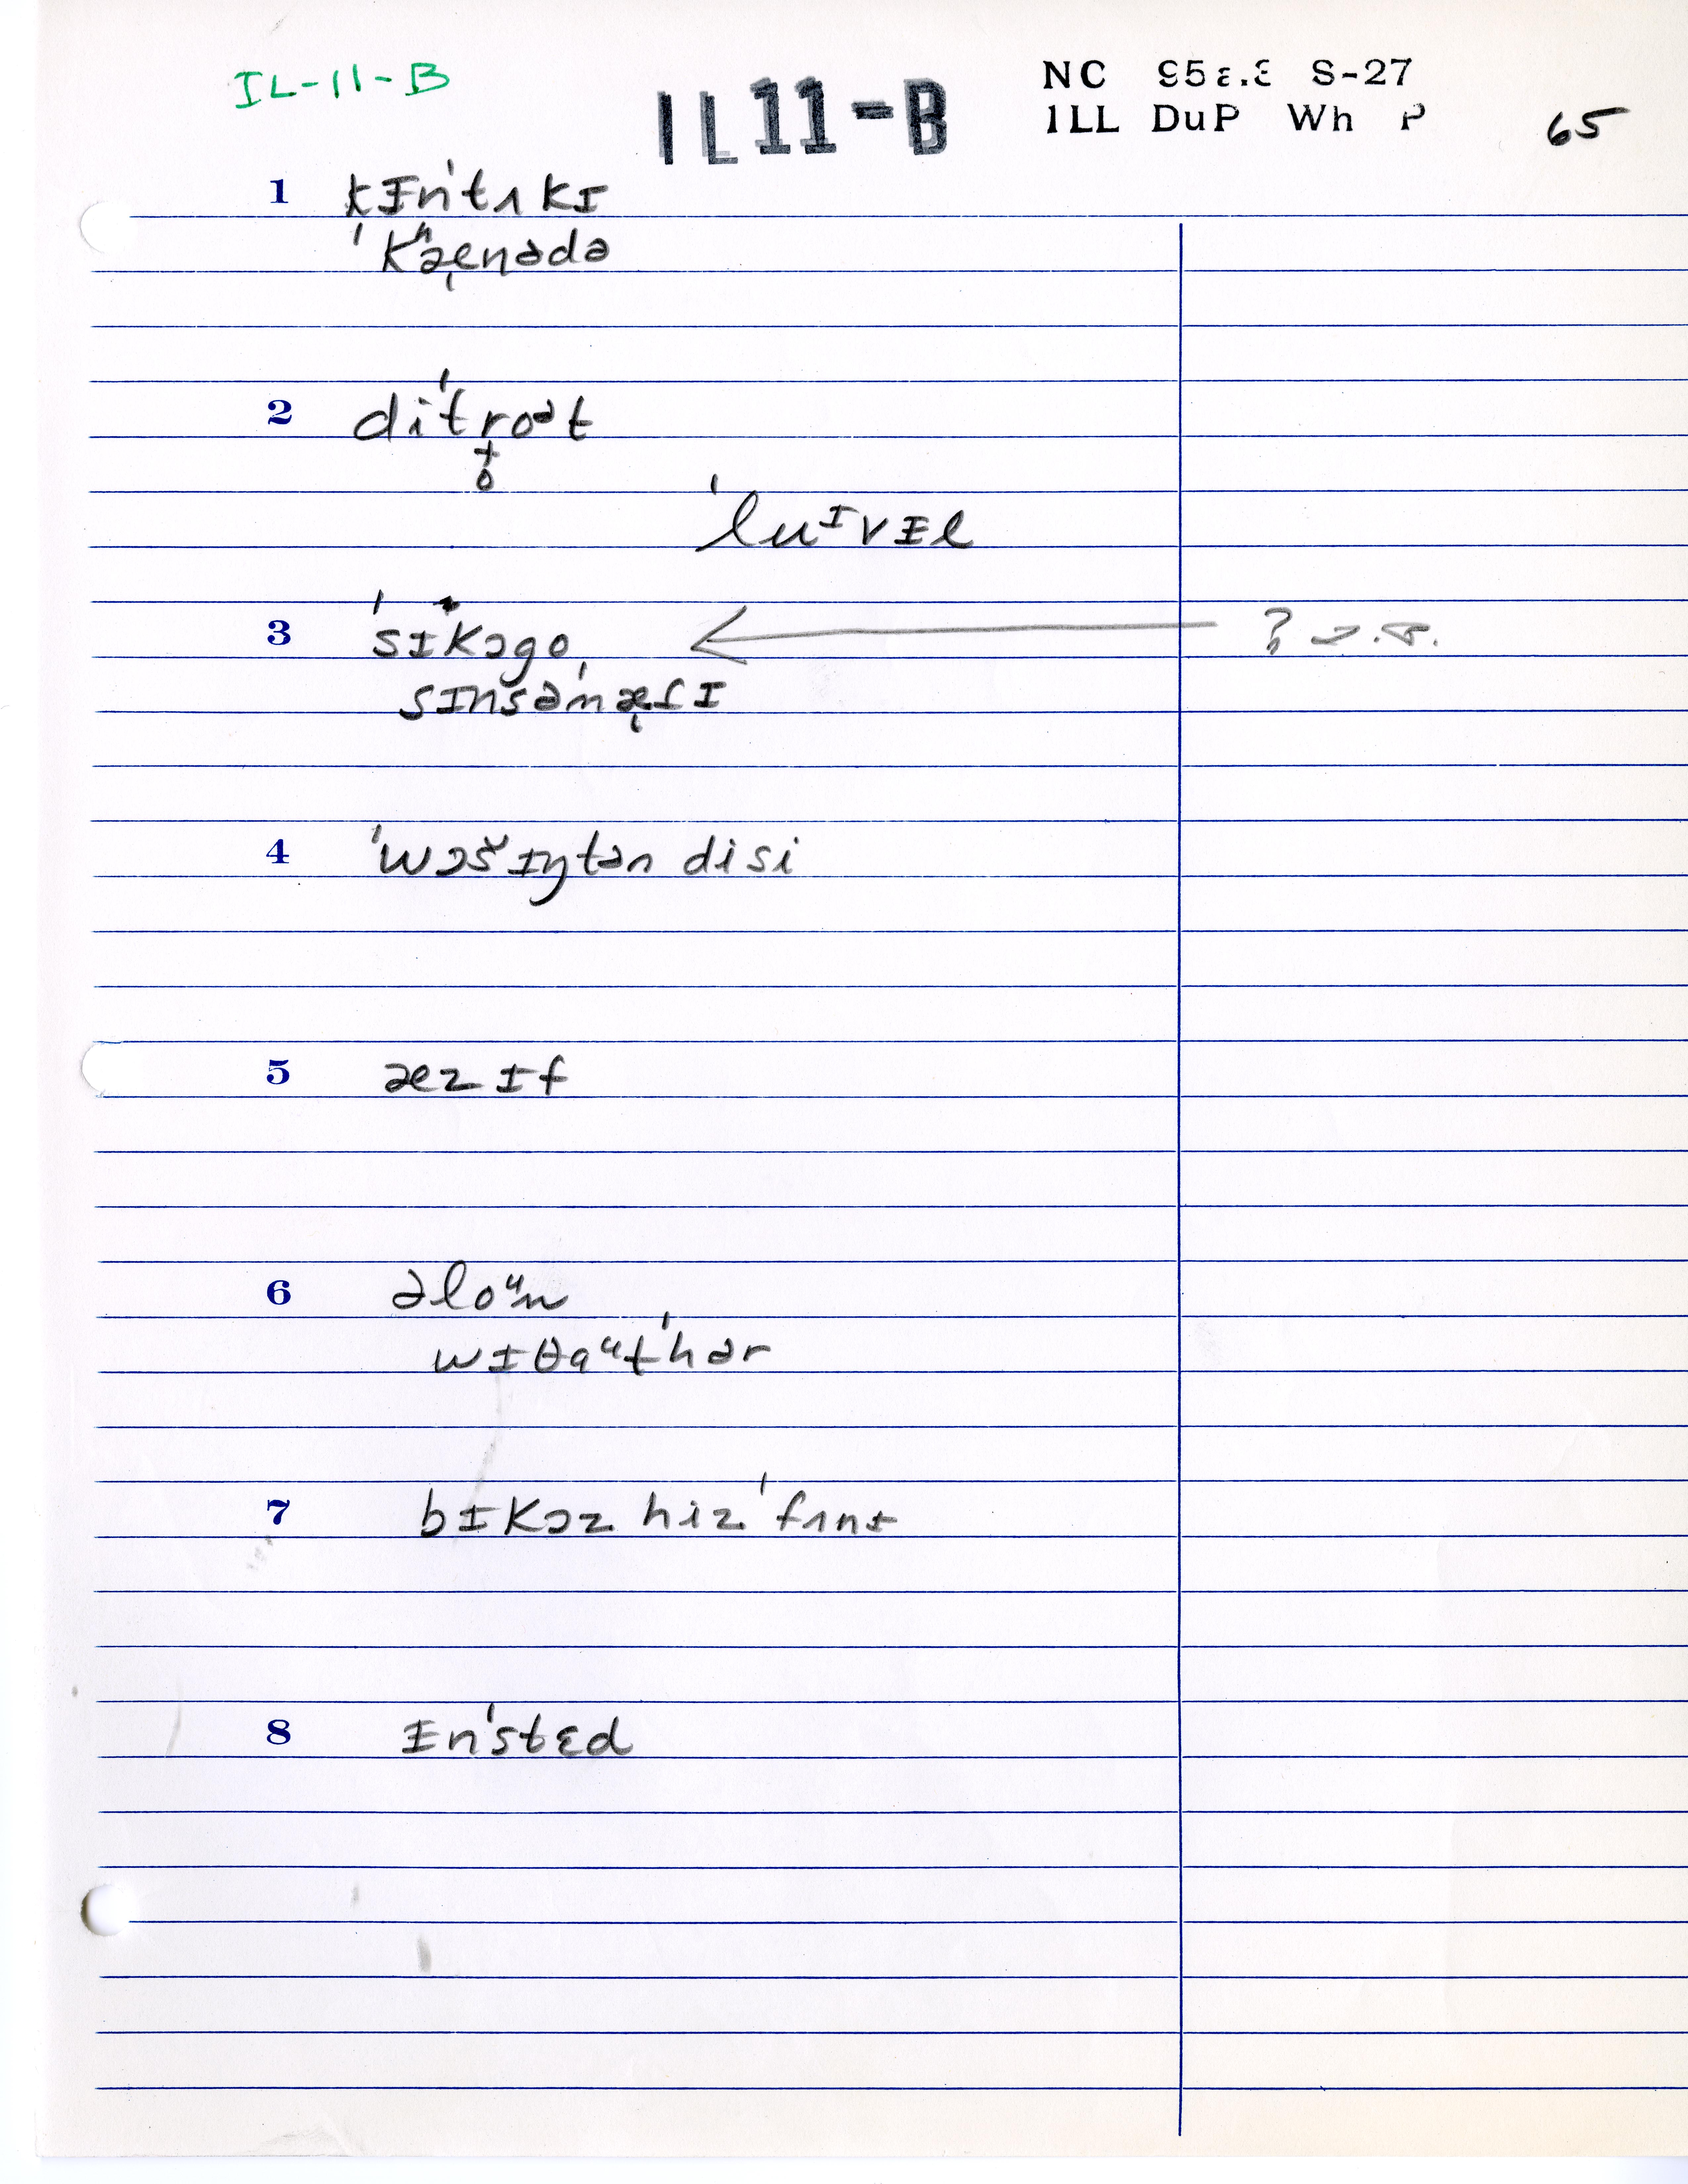 IL-11-B
IL11-B
NC 958.3 S-27
ILL DuP Wh P
65
1 kɪn'tʌkɪ
'kʰænədə
2 di'troət
'luᴵvɪl
3 'sɪkɔgo
sɪnsə'næfɪ
?
4 'wɔšɪŋtən disi
5 æz ɪf
6 əloᵘn
wɪθaᵘt'hər
7 bɪkɔz hiz 'fʌnɪ
8 ɪn'stɛd